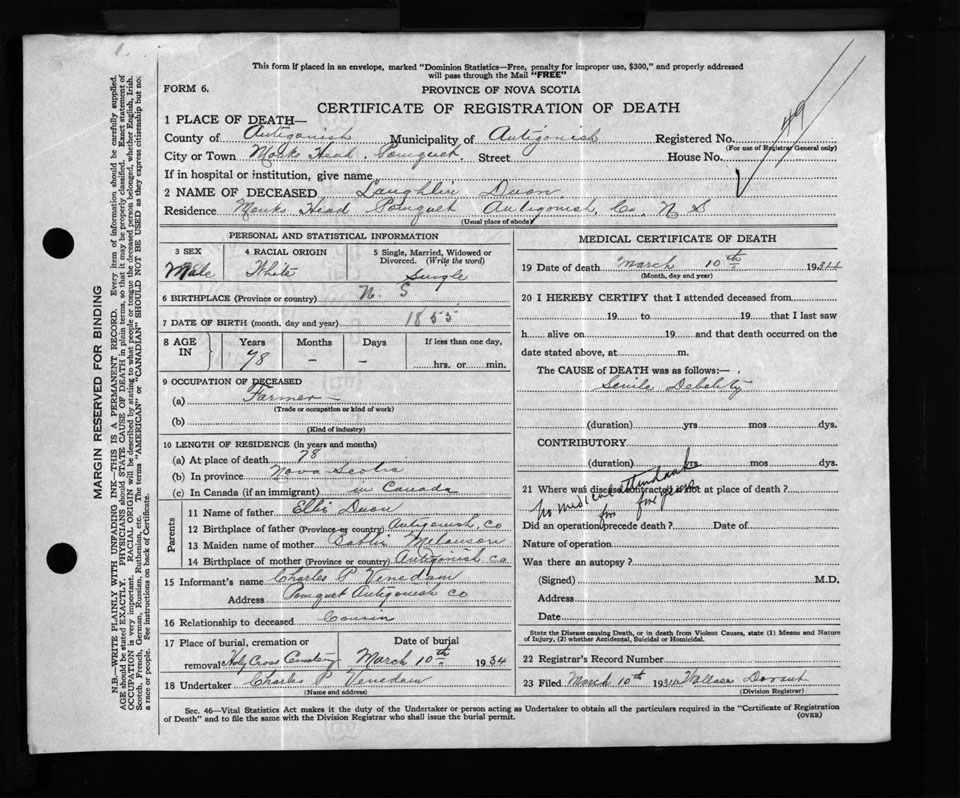 This form if placed in an envelope, marked "Dominion Statistics—Free, penalty for improper use, $300," and properly addressed
will pass through the Mail "FREE"
FORM 6.
PROVINCE OF NOVA SCOTIA
CERTIFICATE OF REGISTRATION OF DEATH
49
1 PLACE OF DEATH—
County of Antigonish Municipality of Antigonish Registered No.
(For use of Registrar General only)
City or Town Monks Head, Pomquet, Street House No.
If in hospital or institution, give name
2 NAME OF DECEASED Laughlin Duon
Residence Monks Head Pomquet Antigonish, Co, N S
(Usual place of abode)
PERSONAL AND STATISTICAL INFORMATION
3 SEX 4 RACIAL ORIGIN 5 Single, Married, Widowed or
Divorced. (Write the word)
Male White Single
6 BIRTHPLACE (Province or country) N. S
7 DATE OF BIRTH (month, day and year) 1855
8 AGE IN Years Months Days If less than one day,
78 – – hrs. or min.
9 OCCUPATION OF DECEASED
(a) Farmer –
(Trade or occupation or kind of work)
(b)
(Kind of industry)
10 LENGTH OF RESIDENCE (in years and months)
(a) At place of death 78
(b) In province Nova Scotia
(c) In Canada (if an immigrant) in Canada
Parents
11 Name of father Duon
12 Birthplace of father (Province or country) Antigonish, Co
13 Maiden name of mother Melanson
14 Birthplace of mother (Province or country) Antigonish Co
15 Informant's name Charles P Venedam
Address Pomquet Antigonish Co
16 Relationship to deceased Cousin
17 Place of burial, cremation or Date of burial
removal Holy Cross Cemetery March 10th 1934
18 Undertaker Charles P Venedam
(Name and address)
MEDICAL CERTIFICATE OF DEATH
19 Date of death March 10th 1934
(Month, day and year)
20 I HEREBY CERTIFY that I attended deceased from
19 to 19 that I last saw
h alive on 19 and that death occurred on the
date stated above, at m.
The CAUSE of DEATH was as follows:—
Senile Debility
(duration) yrs mos dys.
CONTRIBUTORY
(duration) yrs mos dys.
21 Where was disease contracted if not at place of death?
no medical attendant
for
Did an operation precede death? Date of
Nature of operation
Was there an autopsy?
(Signed) M.D.
Address
Date
State the Disease causing Death, or in death from Violent Causes, state (1) Means and Nature
of Injury, (2) whether Accidental, Suicidal or Homicidal.
22 Registrar's Record Number
23 Filed March 10th 1934 Wallace
(Division Registrar)
Sec. 46—Vital Statistics Act makes it the duty of the Undertaker or person acting as Undertaker to obtain all the particulars required in the "Certificate of Registration
of Death" and to file the same with the Division Registrar who shall issue the burial permit.
(OVER)
MARGIN RESERVED FOR BINDING
N.B.—WRITE PLAINLY WITH UNFADING INK—THIS IS A PERMANENT RECORD. Every item of information should be carefully supplied.
AGE should be stated EXACTLY. PHYSICIANS should STATE CAUSE OF DEATH in plain terms, so that it may be properly classified. Exact statement of
OCCUPATION is very important. RACIAL ORIGIN will be described by stating to what people or tongue the deceased person belonged, whether English, Irish,
Scotch, French, German, Russian, Ruthenian, etc. The terms "AMERICAN" or "CANADIAN" SHOULD NOT BE USED as they express citizenship but no;
a race or people. See instructions on back of Certificate.